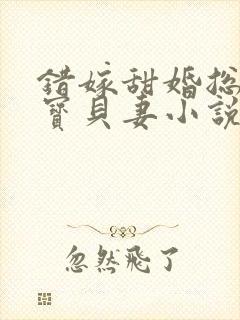 错嫁甜婚总
寶貝妻小說
忽然飛了